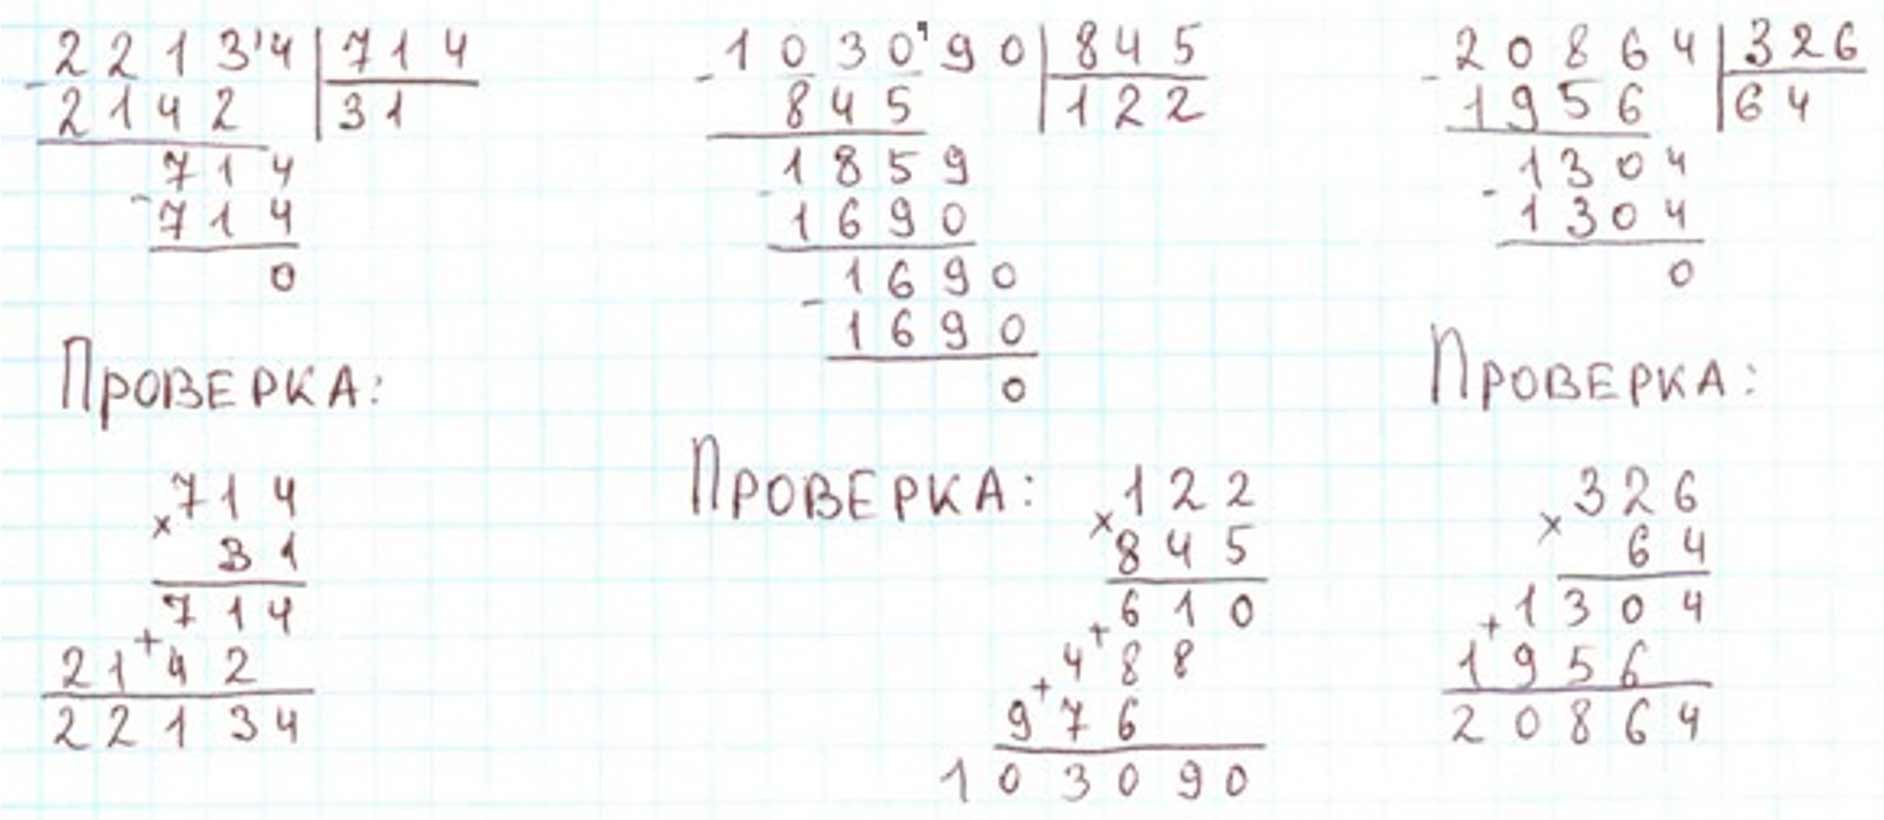 22134 | 714
- 2142 | 31
714
- 714
0
ПРОВЕРКА:
714
× 31
714
+ 2142
22134
103090 | 845
- 845 | 122
1859
- 1690
1690
- 1690
0
ПРОВЕРКА:
122
× 845
610
+ 488
+ 976
103090
20864 | 326
- 1956 | 64
1304
- 1304
0
ПРОВЕРКА:
326
× 64
1304
+ 1956
20864